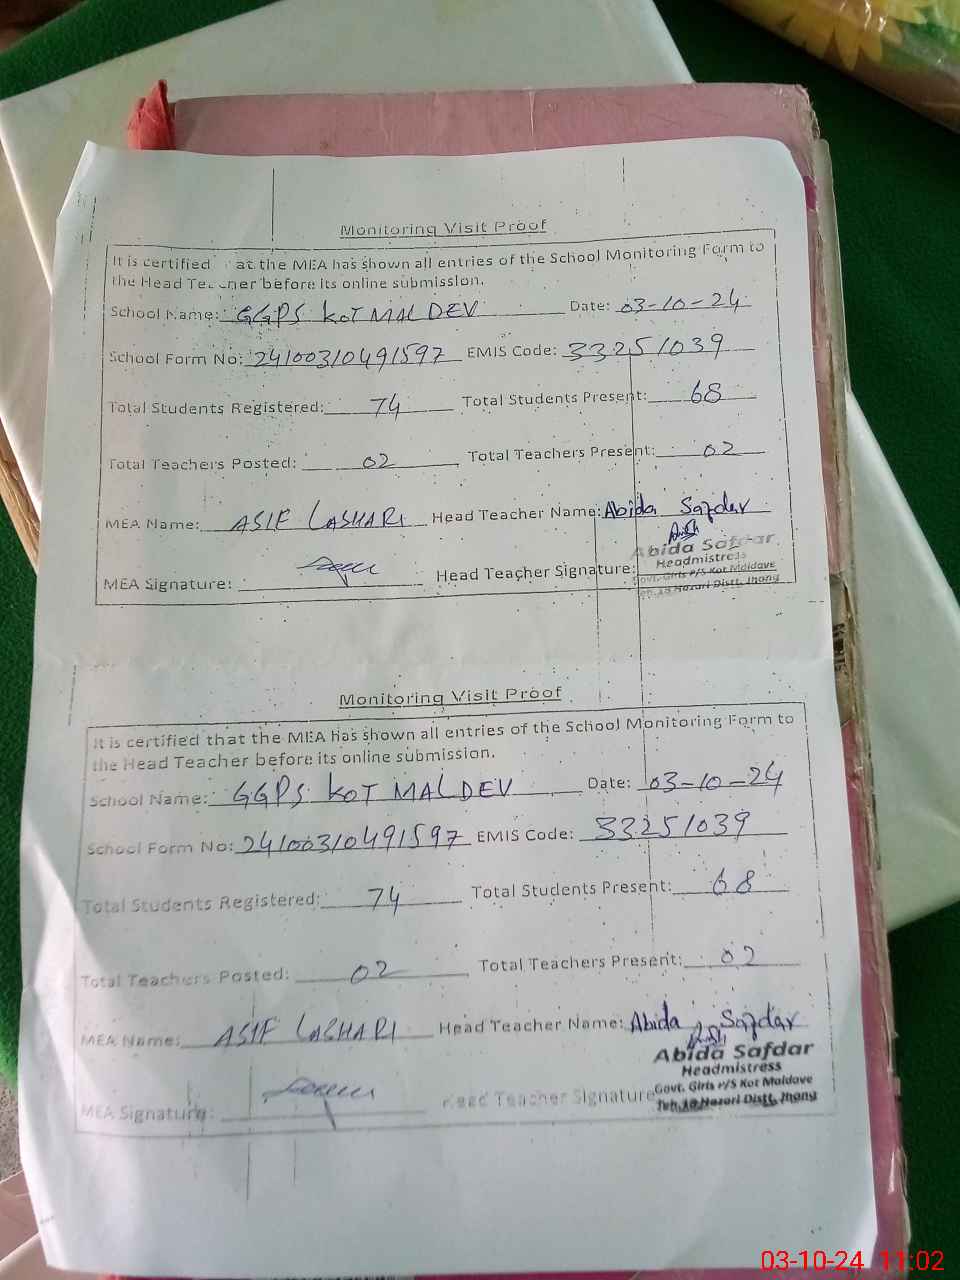 Monitoring Visit Proof
It is certified at the MEA has shown all entries of the School Monitoring Form to
the Head before its online submission.
School Name: GGPS KOT MAL DEV Date: 03-10-24
School Form No: 24100310491597 EMIS Code: 33251039
Total Students Registered: 74 Total Students Present: 68
Total Teachers Posted: 02 Total Teachers Present: 02
MEA Name: ASIF LASHARI Head Teacher Name: Abida Safdar
Abida Safdar
Headmistress
MEA Signature: Head Teacher Signature:
Govt. Girls P/S Kot Maldave
Teh. Hazari Distt. Jhang
Monitoring Visit Proof
It is certified that the MEA has shown all entries of the School Monitoring Form to
the Head Teacher before its online submission.
School Name: GGPS KOT MAL DEV Date: 03-10-24
School Form No: 24100310491597 EMIS Code: 33251039
Total Students Registered: 74 Total Students Present: 68
Total Teachers Posted: 02 Total Teachers Present: 02
MEA Name: ASIF LASHARI Head Teacher Name: Abida Safdar
Abida Safdar
Headmistress
Govt. Girls P/S Kot Maldave
MEA Signature: Head Teacher Signature
Teh. Hazari Distt. Jhang
03-10-24 11:02